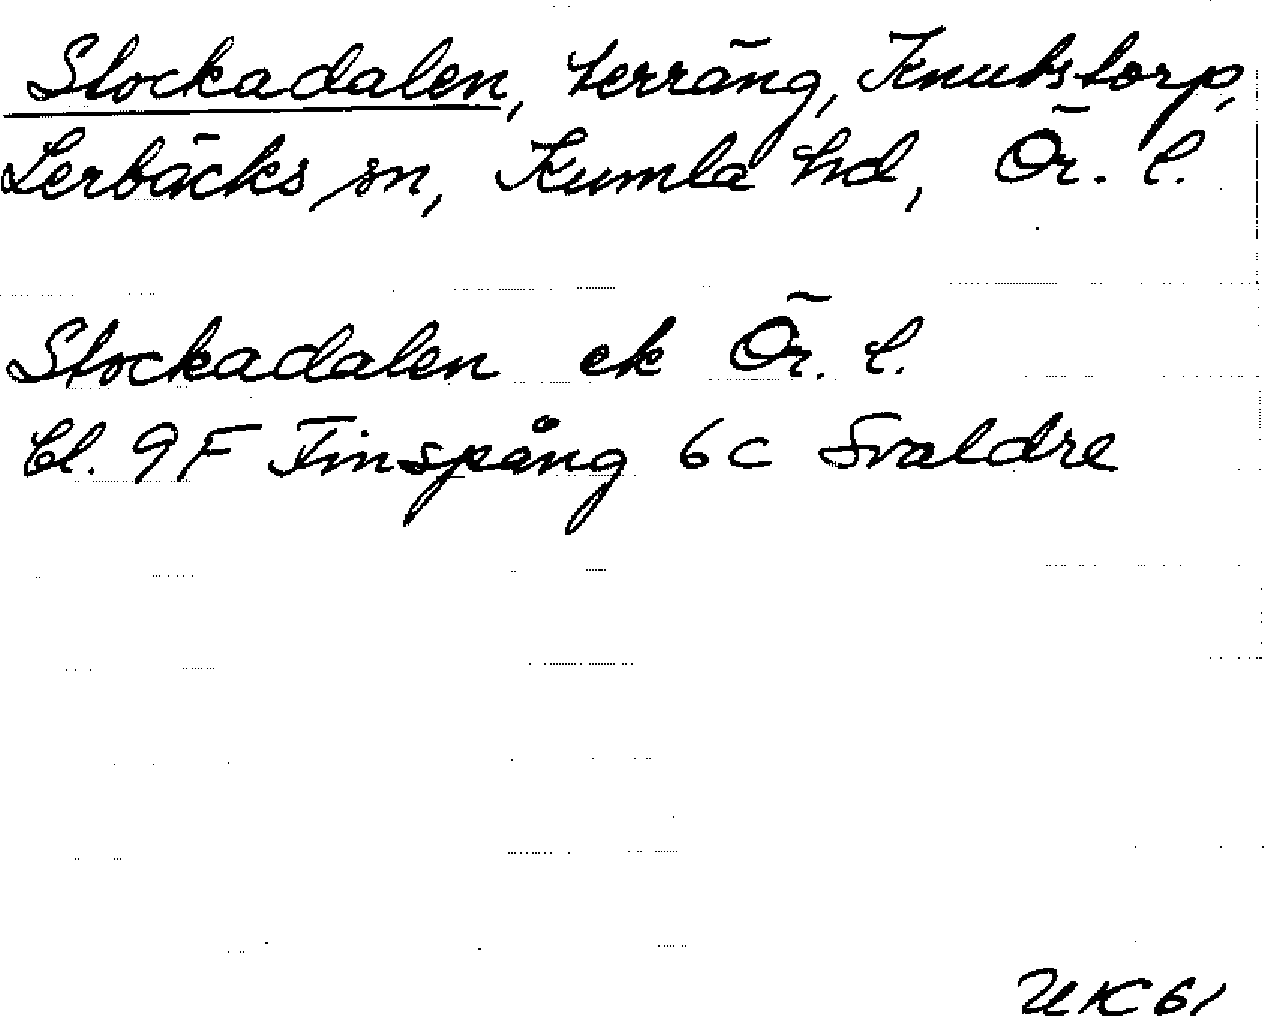 Stockadalen, terräng, Knutstorp,
Lerbäcks sn, Kumla hd, Ör. l.
Stockadalen ek Ör. l.
Bl. 9F Finspång 6c Svaldre
UK 61